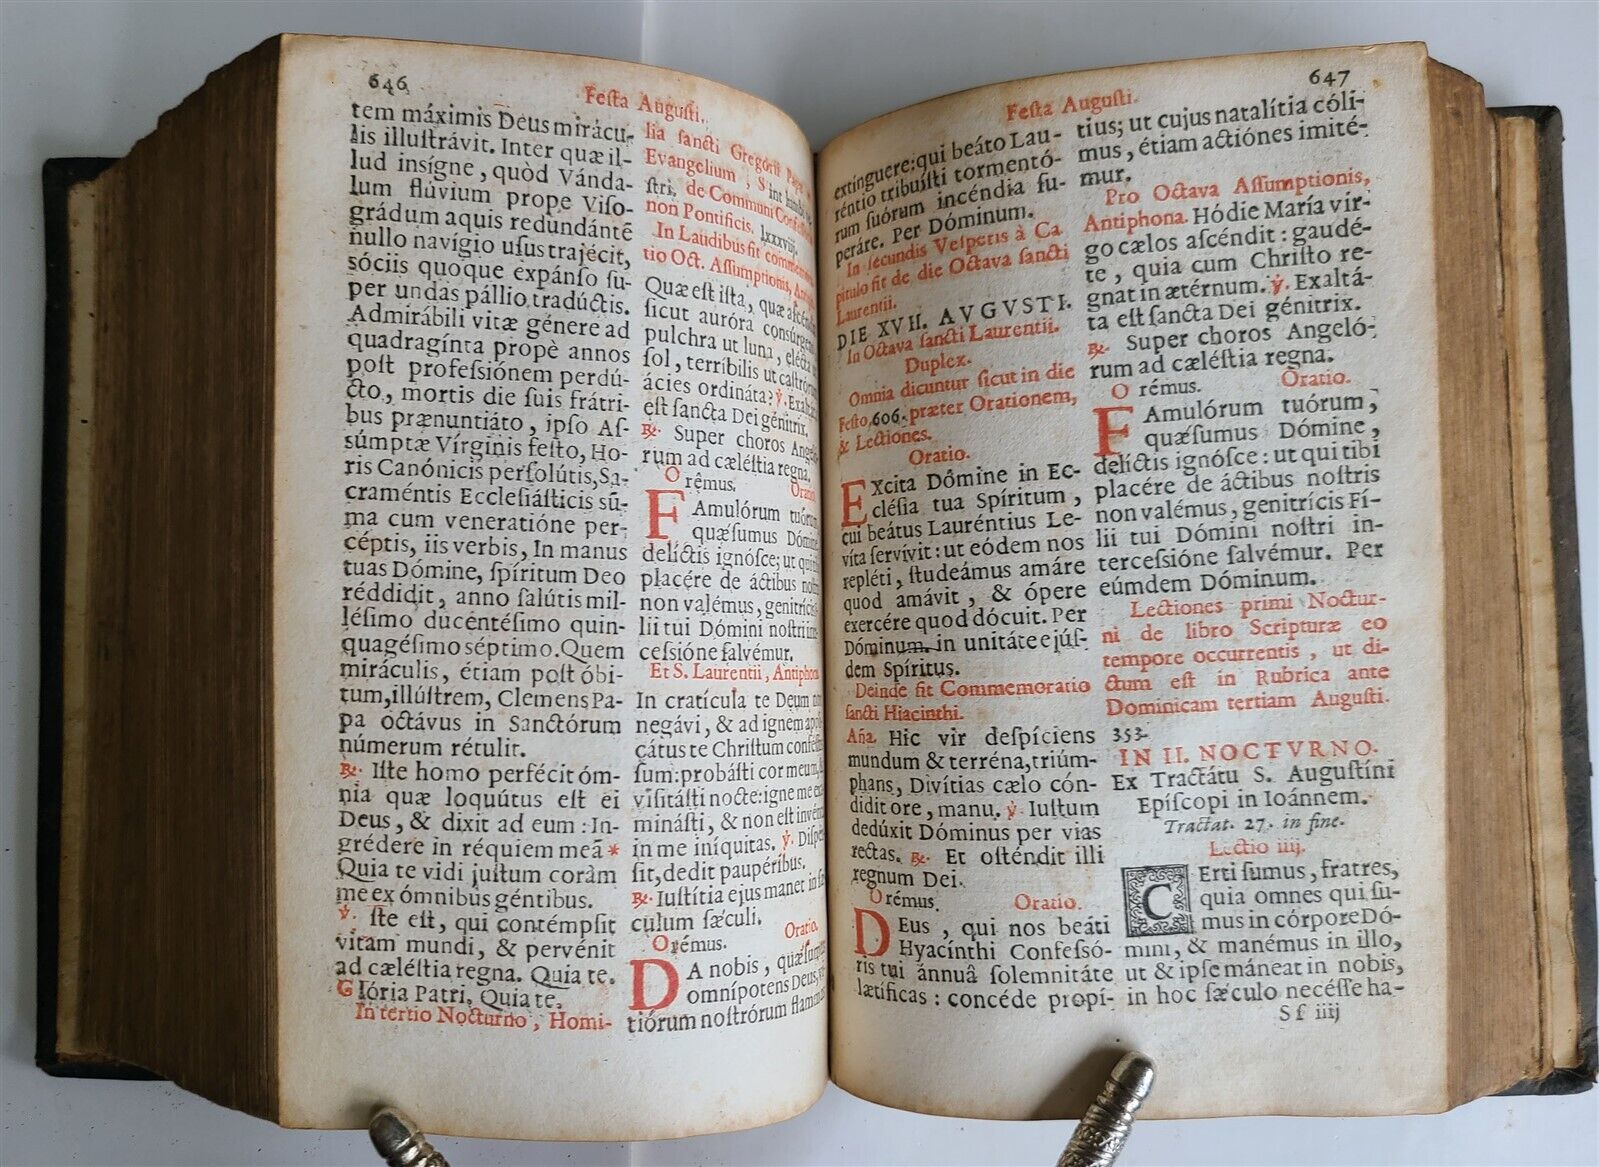 646
Festa Augusti.
tem máximis Deus mirácu-
lis illustrávit. Inter quæ il-
lud insígne, quòd Vánda-
lum flúvium prope Viso-
grádum aquis redundántē
nullo navígio usus trajécit,
sóciis quoque expánso su-
per undas pállio tradúctis.
Admirábili vitæ génere ad
quadragínta propè annos
post professiónem perdú-
cto, mortis die suis frátri-
bus prænuntiáto, ipso As-
súmptæ Vírginis festo, Ho-
ris Canónicis persolútis, Sa-
craméntis Ecclesiásticis sū-
ma cum veneratióne per-
céptis, iis verbis, In manus
tuas Dómine, spíritum Deo
réddidit, anno salútis mil-
lésimo ducéntésimo quin-
quagésimo séptimo. Quem
miráculis, étiam post óbi-
tum, illústrem, Clemens Pa-
pa octávus in Sanctórum
númerum rétulit.
℟. Iste homo perfécit óm-
nia quæ loquútus est ei
Deus, & dixit ad eum: In-
grédere in réquiem meā *
Quia te vidi justum coràm
me ex ómnibus géntibus.
℣. Iste est, qui contēpsit
vitam mundi, & pervénit
ad cæléstia regna. Quia te.
Glória Patri. Quia te.
In tertio Nocturno, Homi-
lia sancti Gregorii Papæ
Evangelium, Sint lumbi
stri, de Communi Confessoris
non Pontificis. lxxxviij.
In Laudibus fit commemora-
tio Oct. Assumptionis,
Quæ est ista, quæ ascéndit
sicut auróra consúrgens
pulchra ut luna, elécta ut
sol, terríbilis ut castrórum
ácies ordináta? ℣. Exaltáta
est sancta Dei génitrix.
℟. Super choros Angeló-
rum ad cæléstia regna.
Orémus. Oratio.
FAmulórum tuórum
quæsumus Dómine
delíctis ignósce; ut qui tibi
placére de áctibus nostris
non valémus, genitrícis
lii tui Dómini nostri in-
cessióne salvémur.
Et S. Laurentii, Antiphona
In cratícula te Deum non
negávi, & ad ignem appli-
cátus te Christum conféssus
sum: probásti cor meum, &
visitásti nocte: igne me exa-
minásti, & non est invénta
in me iníquitas. ℣. Dispér-
sit, dedit paupéribus.
℟. Iustítia ejus manet in sæ-
culum sæculi.
Orémus. Oratio.
DA nobis, quæsumus
omnípotens Deus,
tiórum nostrórum flammas
647
Festa Augusti.
extínguere: qui beáto Lau-
réntio tribuísti tormentó-
rum suórum incéndia su-
peráre. Per Dóminum.
In secundis Vesperis à Ca
pitulo fit de die Octava sancti
Laurentii.
DIE XVII. AVGVSTI.
In Octava sancti Laurentii.
Duplex.
Omnia dicuntur sicut in die
Festo, 606. præter Orationem,
& Lectiones.
Oratio.
EXcita Dómine in Ec-
clésia tua Spíritum,
cui beátus Lauréntius Le-
víta servívit: ut eódem nos
repléti, studeámus amáre
quod amávit, & ópere
exercére quod dócuit. Per
Dóminum. in unitáte ejús-
dem Spíritus.
Deinde fit Commemoratio
sancti Hiacinthi.
Aña. Hic vir despíciens
mundum & terréna, triúm-
phans, Divítias cælo cón-
didit ore, manu. ℣. Iustum
dedúxit Dóminus per vias
rectas. ℟. Et osténdit illi
regnum Dei.
Orémus. Oratio.
DEus, qui nos beáti
Hyacínthi Confessó-
ris tui ánnuâ solemnitáte
lætíficas: concéde propí-
tius; ut cujus natalítia cóli-
mus, étiam actiónes imité-
mur.
Pro Octava Assumptionis,
Antiphona. Hódie María vir-
go cælos ascéndit: gaudé-
te, quia cum Christo re-
gnat in ætérnum. ℣. Exaltá-
ta est sancta Dei génitrix.
℟. Super choros Angeló-
rum ad cæléstia regna.
Orémus. Oratio.
FAmulórum tuórum,
quæsumus Dómine,
delíctis ignósce: ut qui tibi
placére de áctibus nostris
non valémus, genitrícis Fí-
lii tui Dómini nostri in-
tercessióne salvémur. Per
eúmdem Dóminum.
Lectiones primi Noctur-
ni de libro Scripturæ eo
tempore occurrentis, ut di-
ctum est in Rubrica ante
Dominicam tertiam Augusti.
353.
IN II. NOCTVRNO.
Ex Tractátu S. Augustíni
Epíscopi in Ioánnem.
Tractat. 27. in fine.
Lectio iiij.
CErti sumus, fratres,
quia omnes qui su-
mus in córpore Dó-
mini, & manémus in illo,
ut & ipse máneat in nobis,
in hoc sæculo necésse ha-
Sf iiij